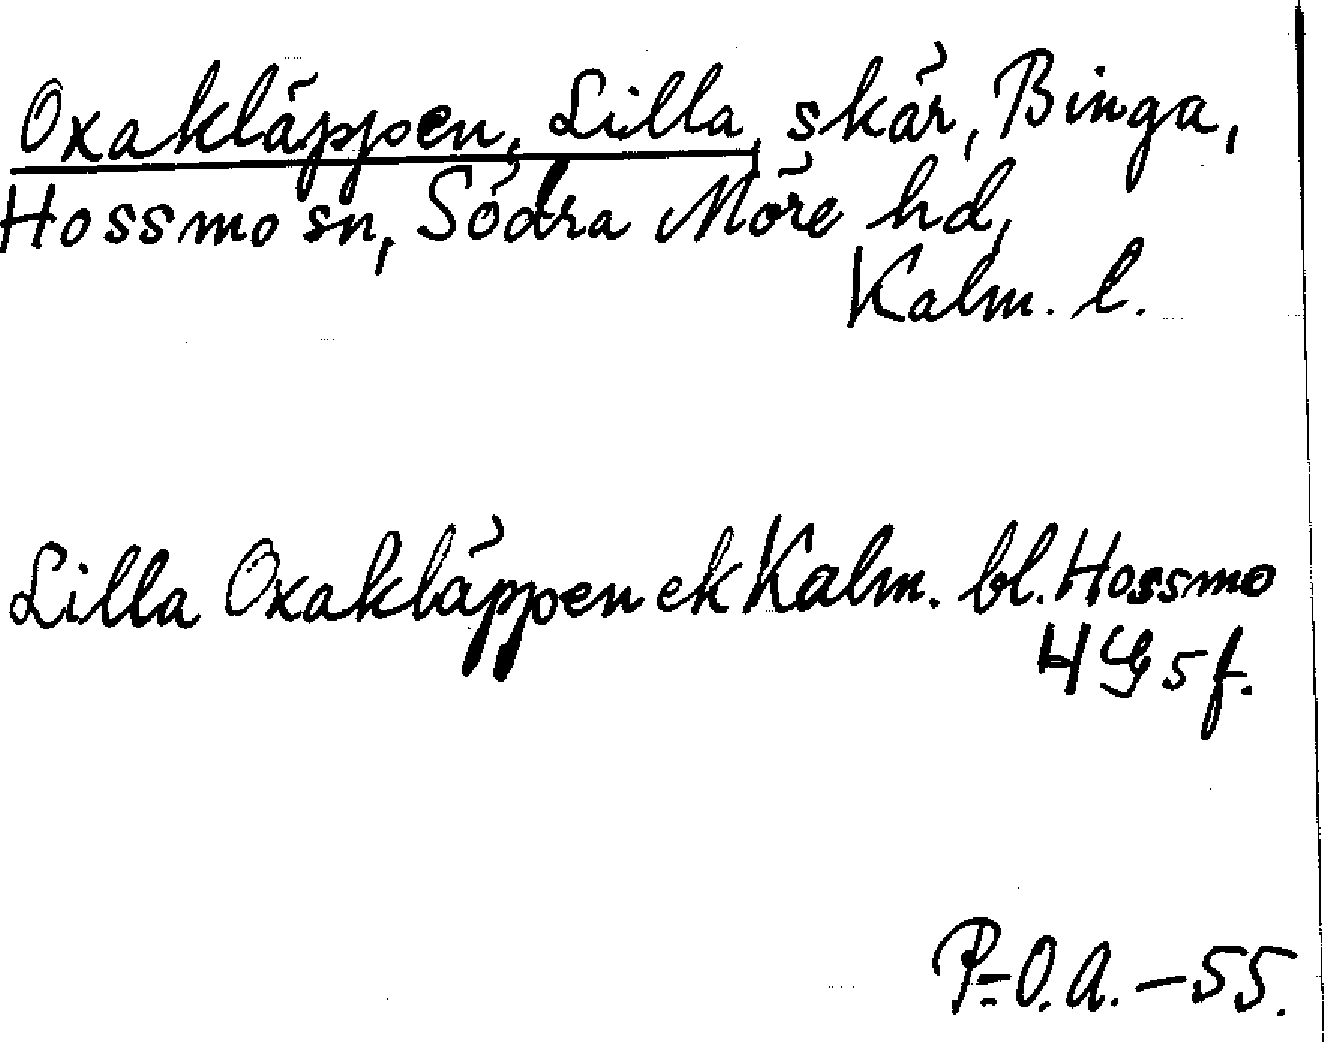 Oxakläppen, Lilla, skär, Binga,
Hossmo sn, Södra Möre hd,
Kalm. l.
Lilla Oxakläppen ek Kalm. bl. Hossmo
4G5f.
P.-O.A. - 55.